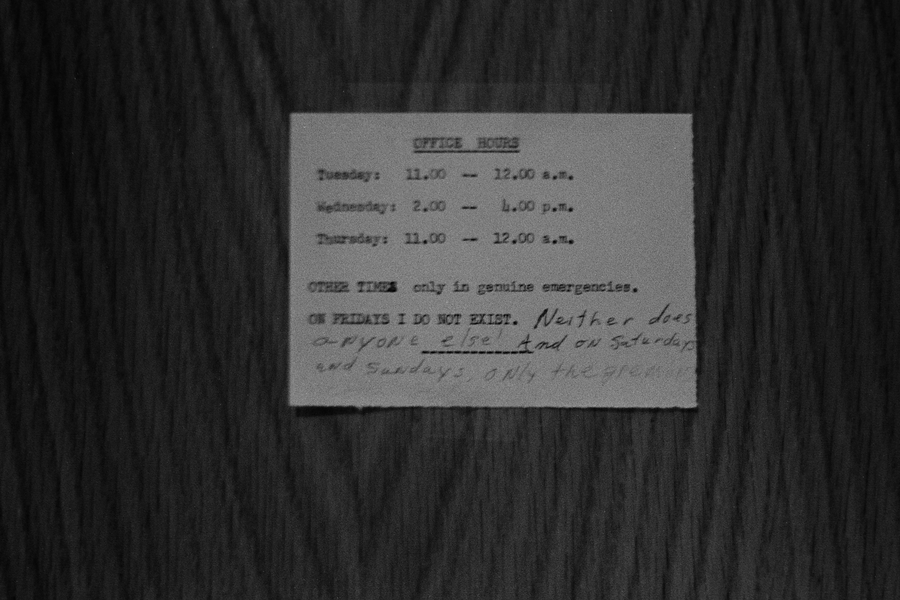 OFFICE HOURS
Tuesday: 11.00 -- 12.00 a.m.
Wednesday: 2.00 -- 4.00 p.m.
Thursday: 11.00 -- 12.00 a.m.
OTHER TIMES only in genuine emergencies.
ON FRIDAYS I DO NOT EXIST. Neither does
anyone else! And on Saturdays
and Sundays, only the